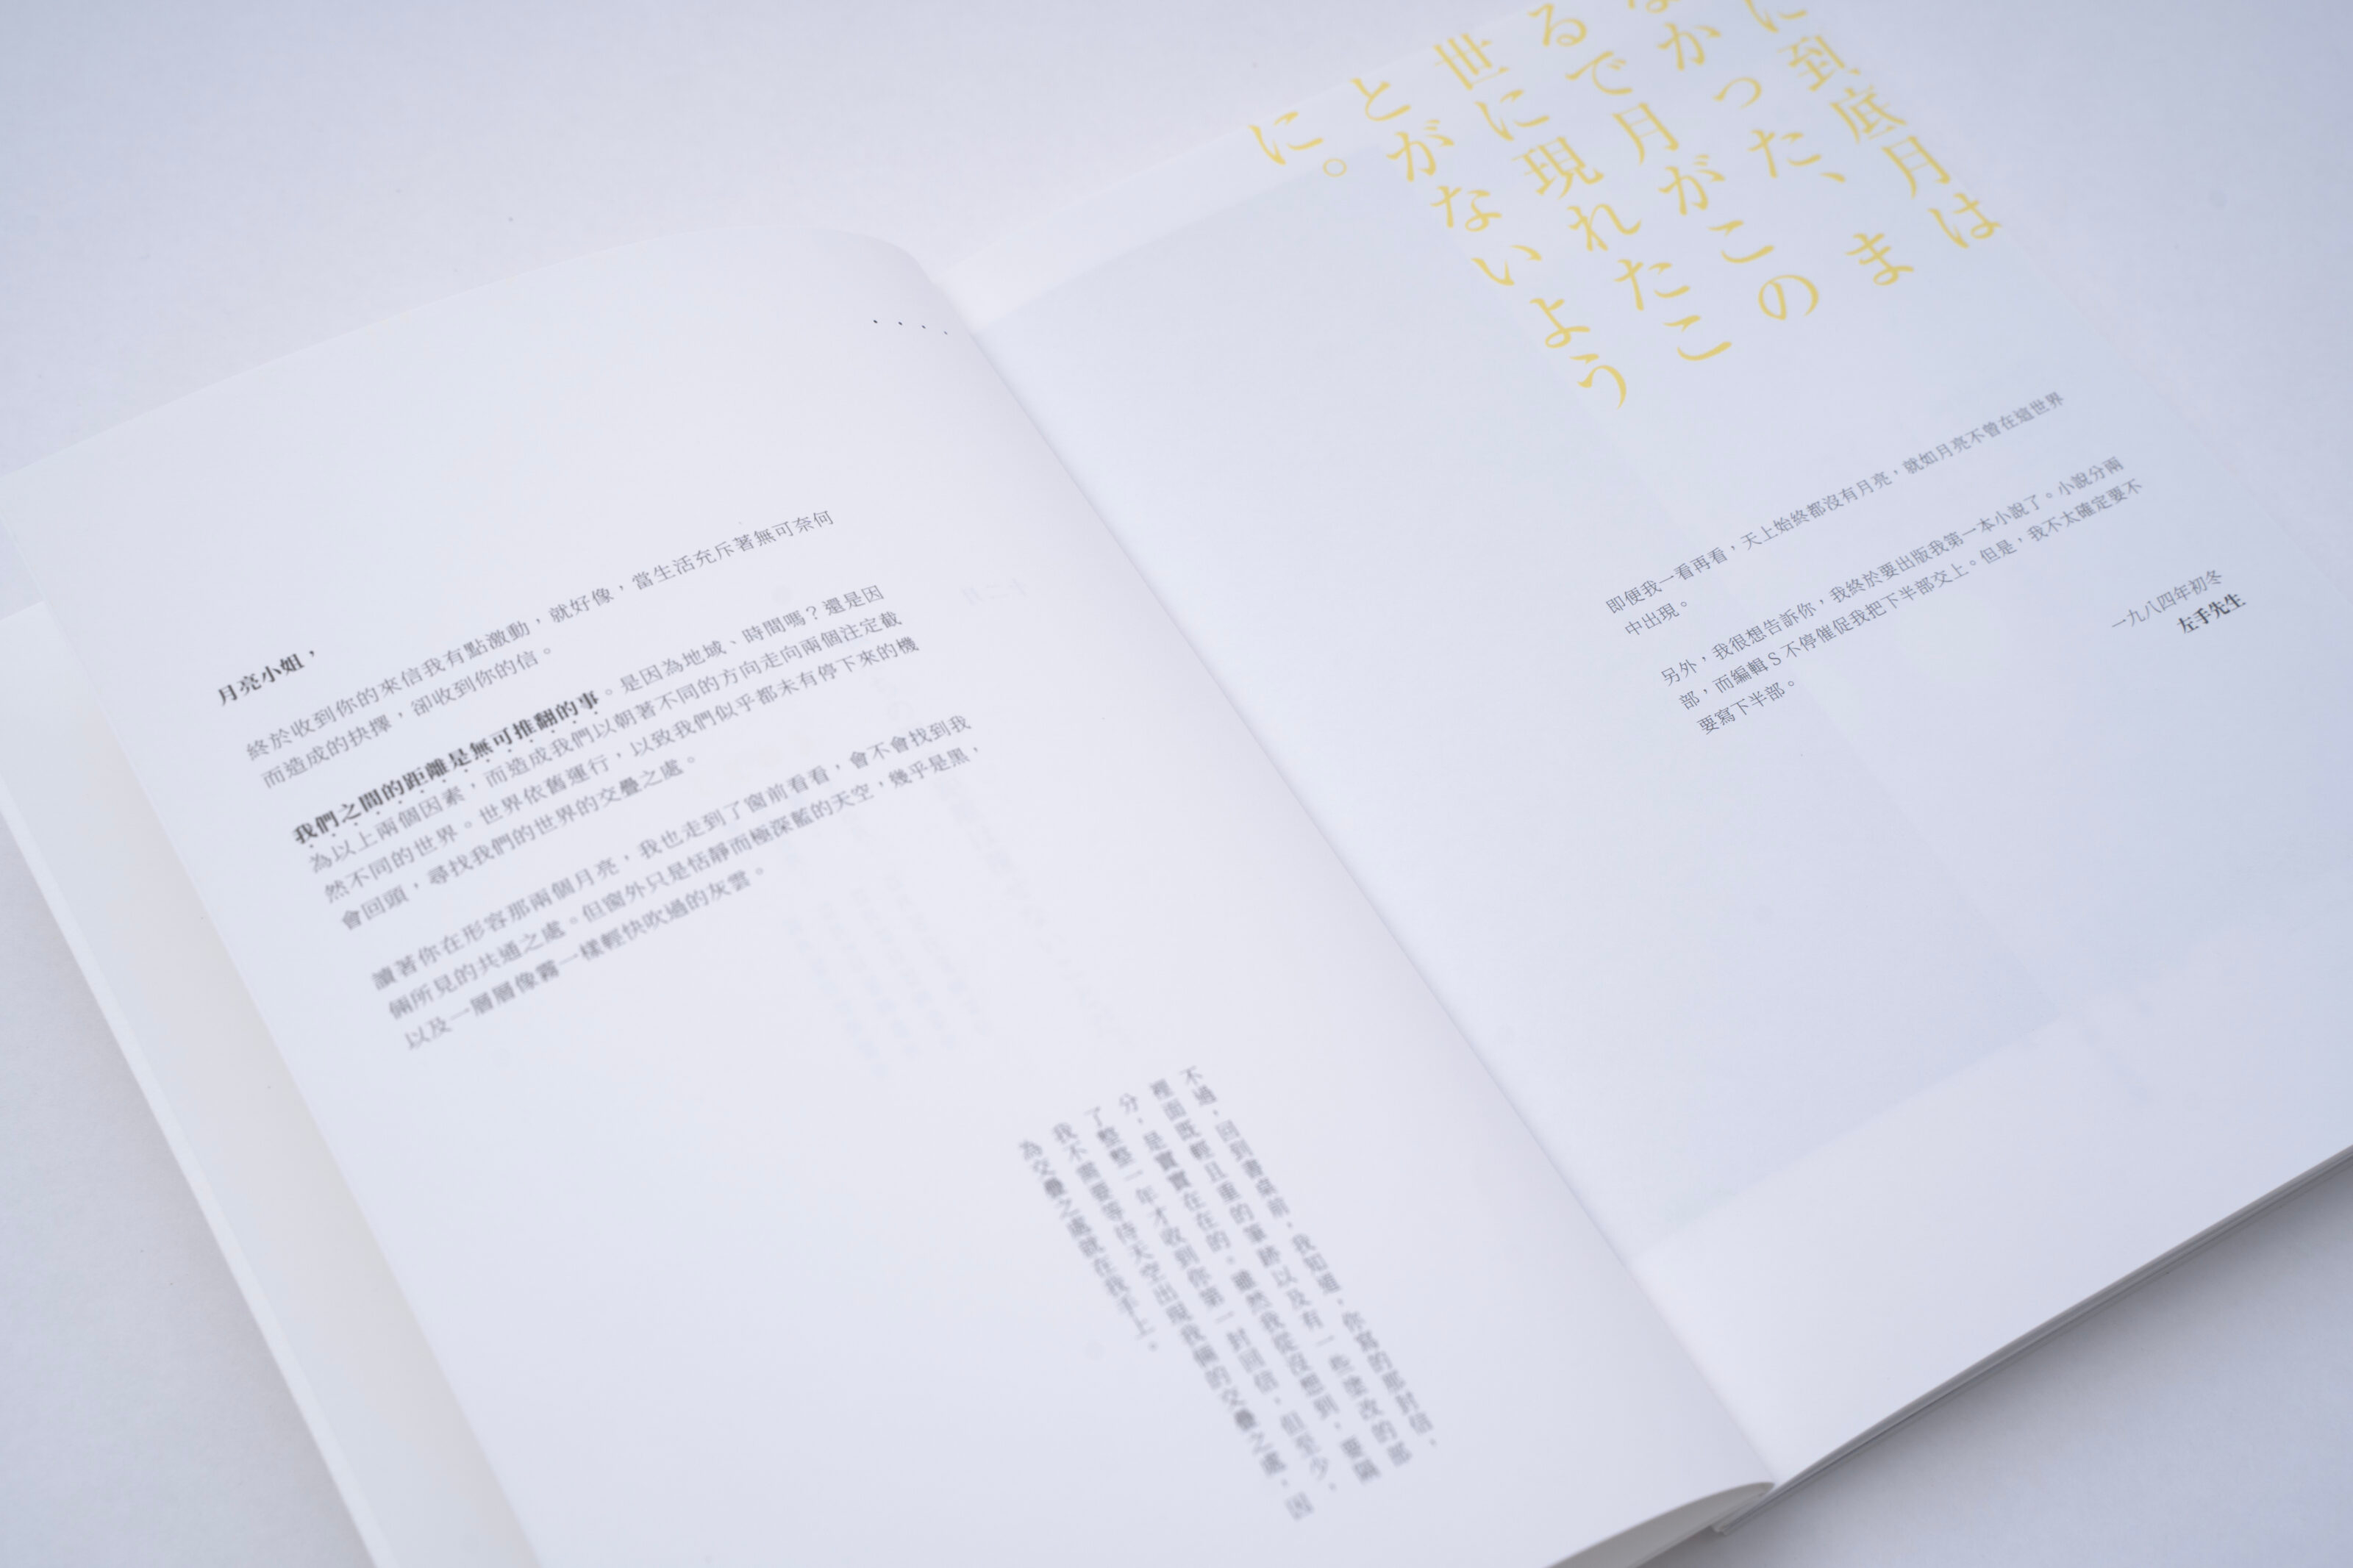 月亮小姐，
終於收到你的來信我有點激動，就好像，當生活充斥著無可奈何
而造成的抉擇，卻收到你的信。
我們之間的距離是無可推翻的事。是因為地域、時間嗎？還是因
為以上兩個因素，而造成我們以朝著不同的方向走向兩個注定截
然不同的世界。世界依舊運行，以致我們似乎都未有停下來的機
會回頭，尋找我們的世界的交疊之處。
讀著你在形容那兩個月亮，我也走到了窗前看看，會不會找到我
倆所見的共通之處。但窗外只是恬靜而極深藍的天空，幾乎是黑，
以及一層層像霧一樣輕快吹過的灰雲。
不過，回到書桌前，我知道，你寫的那封信，
裡面既輕且重的筆跡以及有一些塗改的部
分，是實實在在的。雖然我從沒想到，要隔
了整整一年才收到你第一封回信，但至少，
我不需要等待天空出現我倆的交疊之處，因
為交疊之處就在我手上。
に到底月は
かった、ま
るで月がこの
世に現れたこ
とがないよう
に。
即便我一看再看，天上始終都沒有月亮，就如月亮不曾在這世界
中出現。
另外，我很想告訴你，我終於要出版我第一本小說了。小說分兩
部，而編輯 S 不停催促我把下半部交上。但是，我不太確定要不
要寫下半部。
一九八四年初冬
左手先生